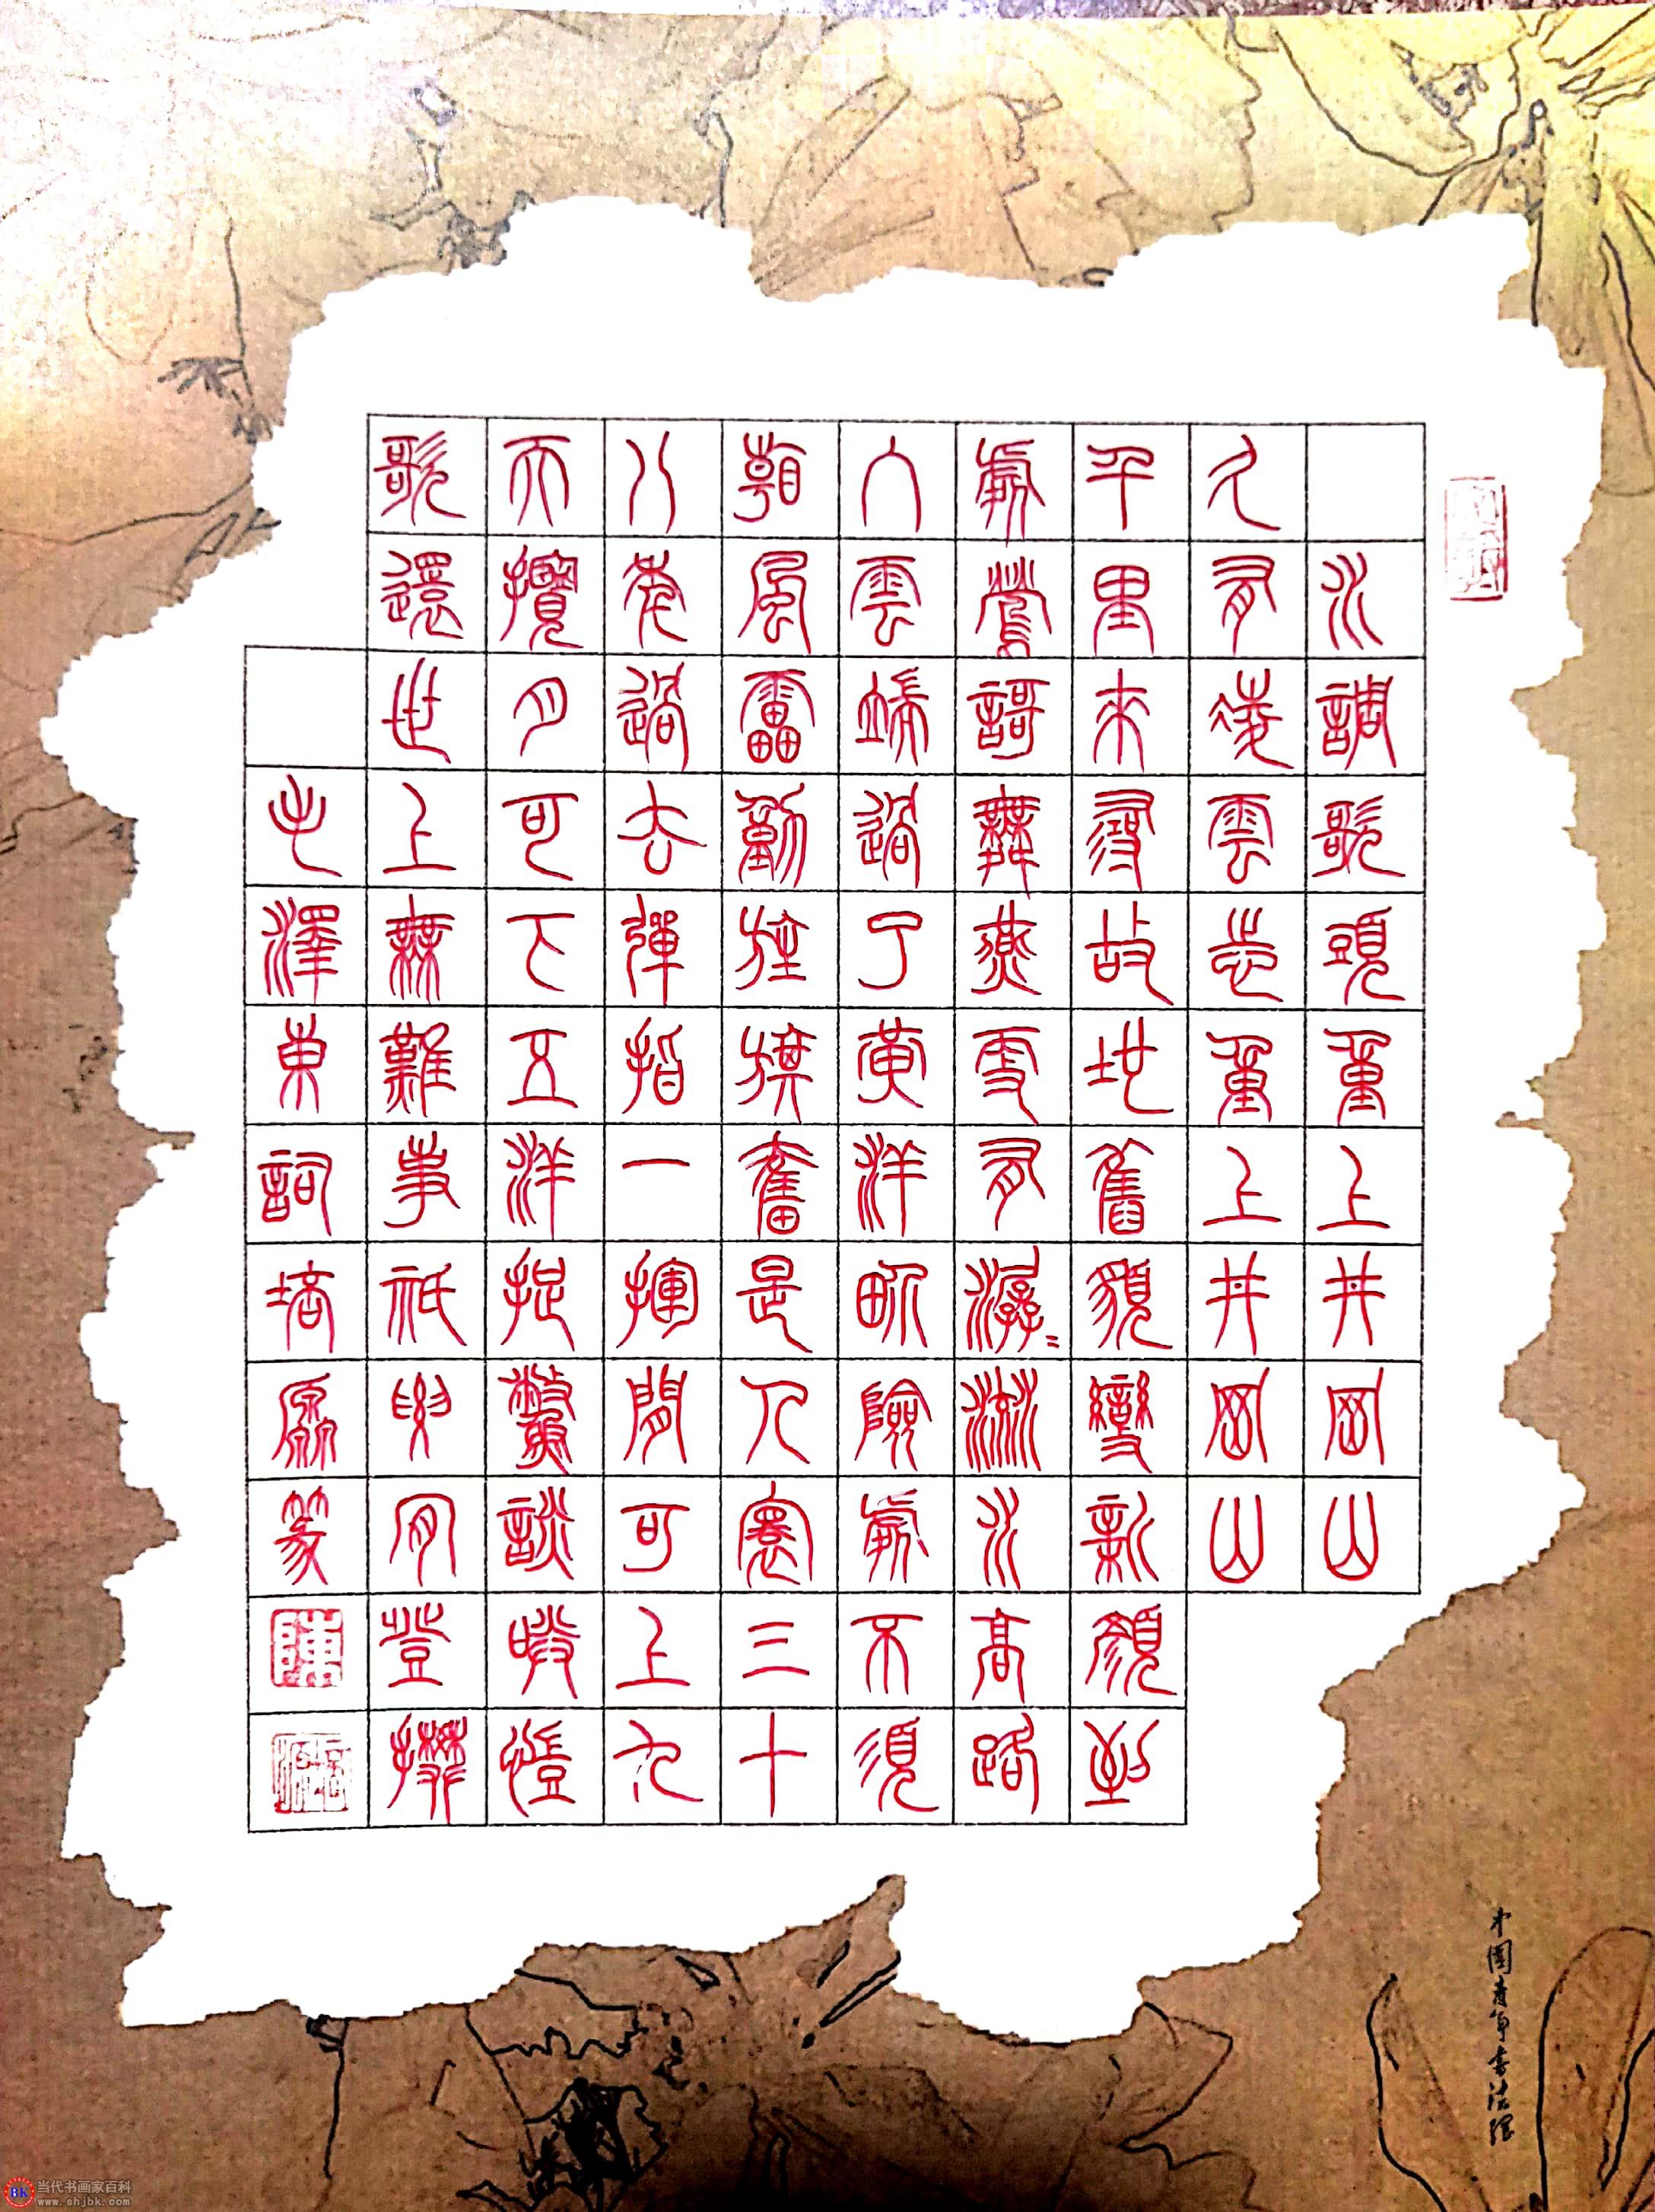 水調歌頭重上井岡山
久有淩雲志重上井岡山
千里來尋故地舊貌變新顏到
處鶯謌舞燕更有潺〻流水高路
入雲端過了黃洋畍險處不須
看風雷動旌旗奮是人寰三十
八年過去彈指一揮間可上九
天攬月可下五洋捉鱉談笑凱
歌還世上無難事祇要肯登攀
毛澤東詞培厵篆
陳
中國青年書法院
当代书画家百科
www.shjbk.com